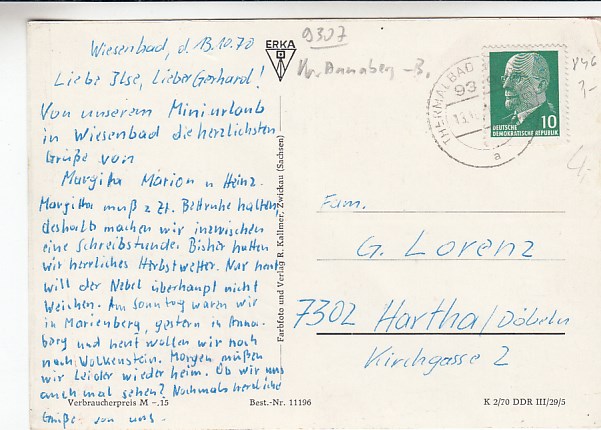 Wiesenbad, d. 13.10.70
Liebe Ilse, Lieber Gerhard!
Von unserem Miniurlaub
in Wiesenbad die herzlichsten
Grüße von
Margitta Marion u Heinz.
Margitta muß z Zt. Bettruhe halten,
deshalb machen wir inzwischen
eine Schreibstunde. Bisher hatten
wir herrliches Herbstwetter. Nur heut
will der Nebel überhaupt nicht
weichen. Am Sonntag waren wir
in Marienberg, gestern in Anna-
berg und heut wollen wir noch
nach Wolkenstein. Morgen müßen
wir leider wieder heim. Ob wir uns
auch mal sehen? Nochmals herzliche
Grüße von uns.
Verbraucherpreis M –.15
Best.-Nr. 11196
ERKA
Farbfoto und Verlag R. Kallmer, Zwickau (Sachsen)
9307
Kr. Annaberg-B.
THERMALBAD
93
13.10.
a
10
DEUTSCHE
DEMOKRATISCHE REPUBLIK
Fam.
G. Lorenz
7302 Hartha/Döbeln
Kirchgasse 2
K 2/70 DDR III/29/5